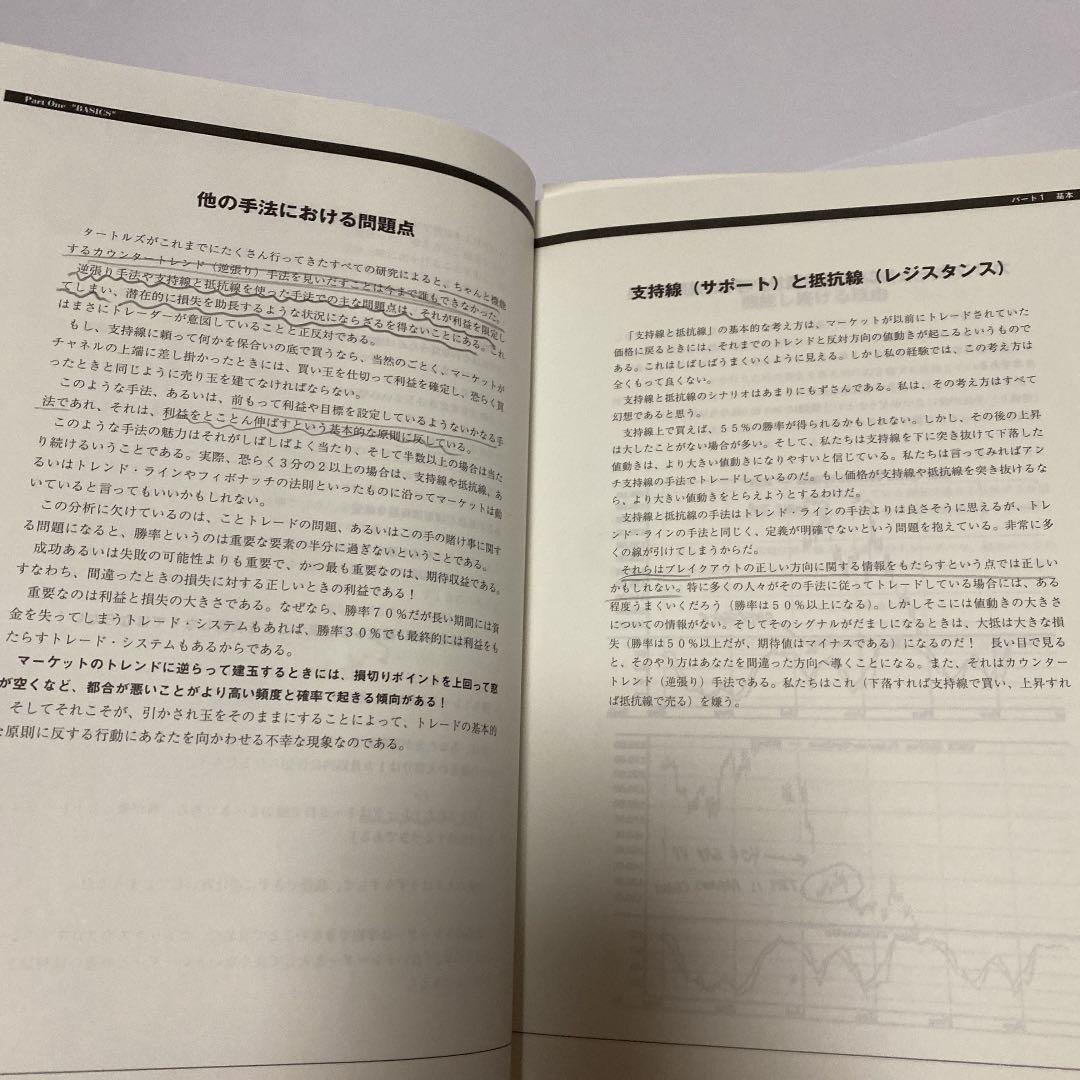 Part One "BASICS"
他の手法における問題点
タートルズがこれまでにたくさん行ってきたすべての研究によると、ちゃんと機能
するカウンタートレンド（逆張り）手法を見いだすことは今まで誰もできなかった。
逆張り手法や支持線と抵抗線を使った手法での主な問題点は、それが利益を限定し
てしまい、潜在的に損失を助長するような状況にならざるを得ないことにある。これ
はまさにトレーダーが意図していることと正反対である。
もし、支持線に頼って何かを保合いの底で買うなら、当然のごとく、マーケットが
チャネルの上端に差し掛かったときには、買い玉を仕切って利益を確定し、恐らく買
ったときと同じように売り玉を建てなければならない。
このような手法、あるいは、前もって利益や目標を設定しているようないかなる手
法であれ、それは、利益をとことん伸ばすという基本的な原則に反している。
このような手法の魅力はそれがしばしばよく当たり、そして半数以上の場合は当た
り続けるいうことである。実際、恐らく３分の２以上の場合は、支持線や抵抗線、あ
るいはトレンド・ラインやフィボナッチの法則といったものに沿ってマーケットは動
いていると言ってもいいかもしれない。
この分析に欠けているのは、ことトレードの問題、あるいはこの手の賭け事に関す
る問題になると、勝率というのは重要な要素の半分に過ぎないということである。
成功あるいは失敗の可能性よりも重要で、かつ最も重要なのは、期待収益である。
すなわち、間違ったときの損失に対する正しいときの利益である！
重要なのは利益と損失の大きさである。なぜなら、勝率７０％だが長い期間には資
金を失ってしまうトレード・システムもあれば、勝率３０％でも最終的には利益をも
たらすトレード・システムもあるからである。
マーケットのトレンドに逆らって建玉するときには、損切りポイントを上回って窓
が空くなど、都合が悪いことがより高い頻度と確率で起きる傾向がある！
そしてそれこそが、引かされ玉をそのままにすることによって、トレードの基本的
な原則に反する行動にあなたを向かわせる不幸な現象なのである。
パート１ 基本
支持線（サポート）と抵抗線（レジスタンス）
「支持線と抵抗線」の基本的な考え方は、マーケットが以前にトレードされていた
価格に戻るときには、それまでのトレンドと反対方向の値動きが起こるというもので
ある。これはしばしばうまくいくように見える。しかし私の経験では、この考え方は
全くもって良くない。
支持線と抵抗線のシナリオはあまりにもずさんである。私は、その考え方はすべて
幻想であると思う。
支持線上で買えば、５５％の勝率が得られるかもしれない。しかし、その後の上昇
は大したことがない場合が多い。そして、私たちは支持線を下に突き抜けて下落した
値動きは、より大きい値動きになりやすいと信じている。私たちは言ってみればアン
チ支持線の手法でトレードしているのだ。もし価格が支持線や抵抗線を突き抜けるな
ら、より大きい値動きをとらえようとするわけだ。
支持線と抵抗線の手法はトレンド・ラインの手法よりは良さそうに思えるが、トレ
ンド・ラインの手法と同じく、定義が明確でないという問題を抱えている。非常に多
くの線が引けてしまうからだ。
それらはブレイクアウトの正しい方向に関する情報をもたらすという点では正しい
かもしれない。特に多くの人々がその手法に従ってトレードしている場合には、ある
程度うまくいくだろう（勝率は５０％以上になる）。しかしそこには値動きの大きさ
についての情報がない。そしてそのシグナルがだましになるときは、大抵は大きな損
失（勝率は５０％以上だが、期待値はマイナスである）になるのだ！ 長い目で見る
と、そのやり方はあなたを間違った方向へ導くことになる。また、それはカウンター
トレンド（逆張り）手法である。私たちはこれ（下落すれば支持線で買い、上昇すれ
ば抵抗線で売る）を嫌う。